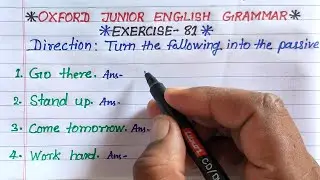 *OXFORD JUNIOR ENGLISH GRAMMAR*
*EXERCISE-81*
Direction: Turn the following into the passive
1. Go there. Ans-
2. Stand up. Ans-
3. Come tomorrow. Ans-
4. Work hard. Ans-